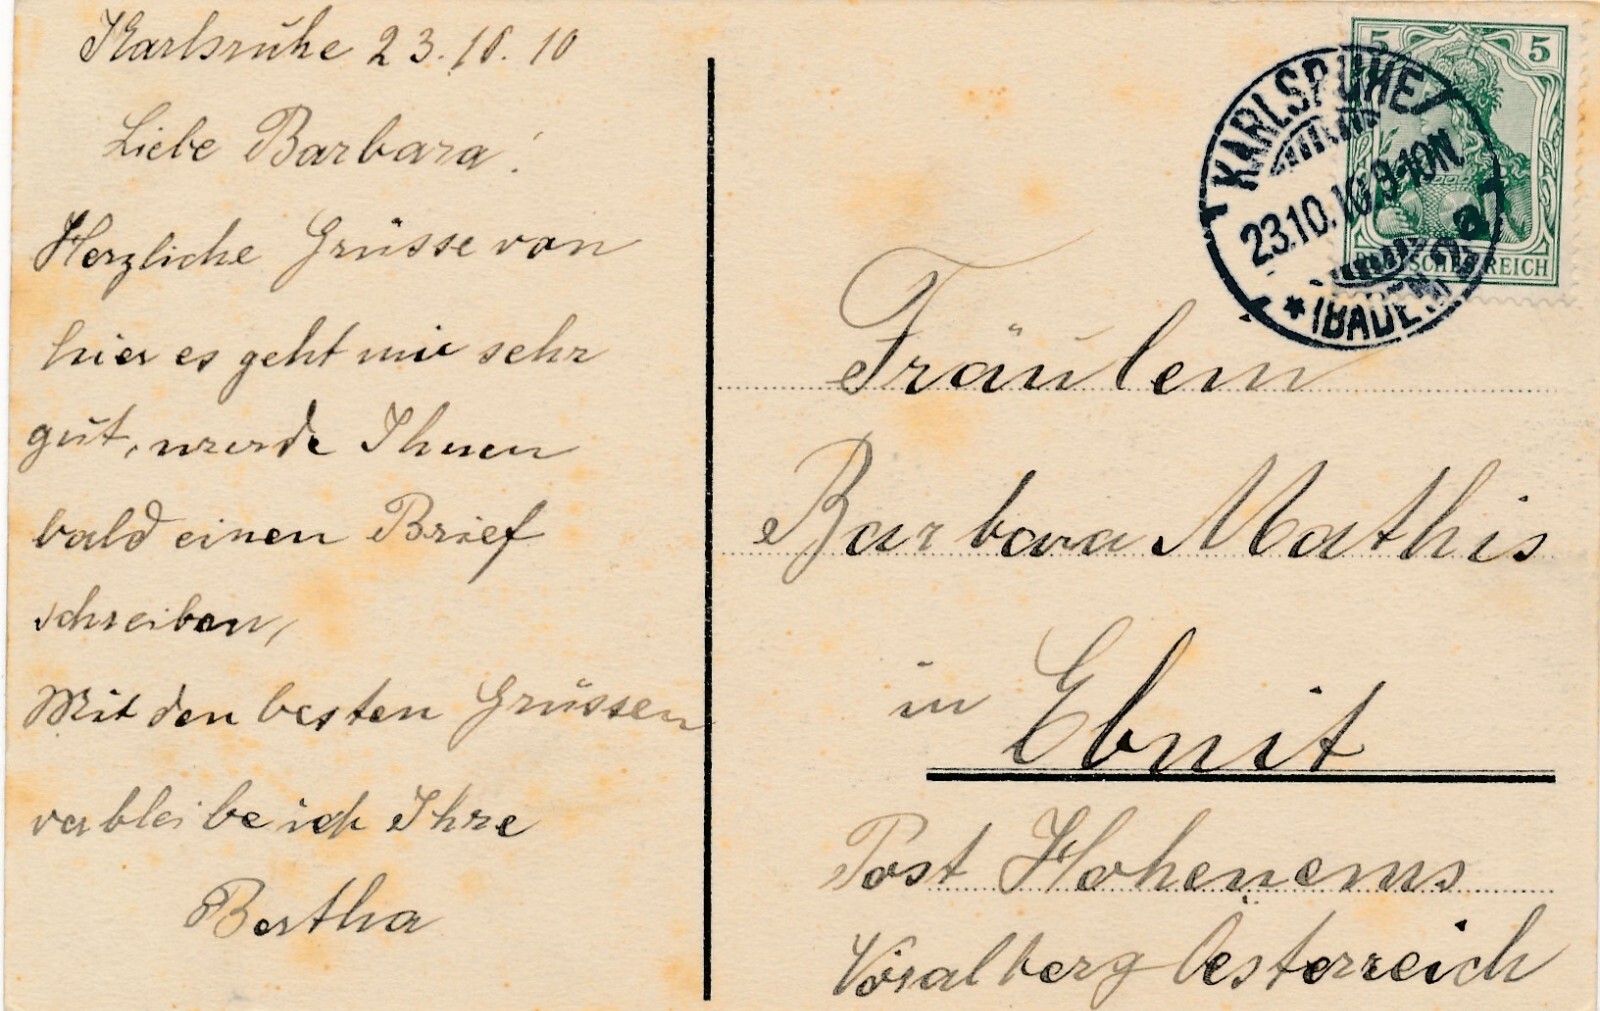 Karlsruhe 23.10.10
Liebe Barbara!
Herzliche Grüsse von
hier es geht mir sehr
gut, werde Ihnen
bald einen Brief
schreiben,
Mit den besten Grüssen
verbleibe ich Ihre
Bertha
5 5
DEUTSCHES REICH
KARLSRUHE
23.10.10.9-10N.
* (BADEN)
Fräulein
Barbara Mathis
in Ebnit
Post Hohenems
Voralberg Oesterreich